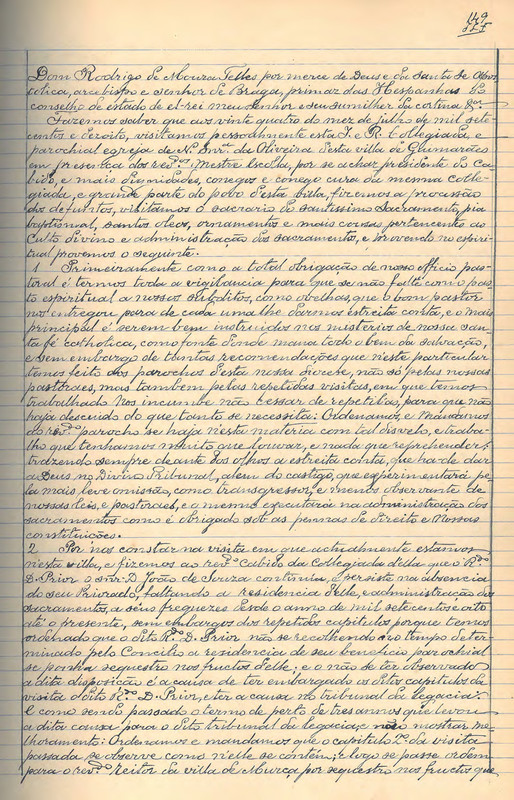 149
Dom Rodrigo de Moura Telles por merce de Deus e da Santa Sé Apos
tolica, arcebispo e senhor de Braga, primaz das Hespanhas do
conselho de estado de el-rei meu senhor e seu sumilher da cortina &ª.
Fazemos saber que aos vinte quatro do mez de julho de mil sete-
centos e dezoito, visitamos pessoalmente esta I. e R. Collegiada, e
parochial egreja de Nª Snrª da Oliveira desta villa de Guimarães
em presença dos revdos Mestre Escola, por se achar presidente do Ca-
bido, e mais dignidades, conegos e conego cura da mesma colle-
giada, e grande parte do povo desta villa, fizemos a procissão
dos defuntos, visitamos o sacrario do santissimo Sacramento, pia
baptismal, santos oleos, ornamentos e mais cousas pertencentes ao
Culto divino e administração dos sacramentos, e provendo no espiri-
tual provemos o seguinte.
1 Primeiramente como a total obrigação de nosso officio pas-
toral é termos toda a vigilancia para que se não falte com o pas-
to espiritual a nossos subditos, como ovelhas, que o bom pastor
nos entregou para de cada uma lhe darmos estreita conta, e o mais
principal é serem bem instruidos nos misterios de nossa san-
ta fé catholica, como fonte donde mana todo o bem da salvação,
e sem embargo de tantas recomendações que neste particular
temos feito aos parochos desta nossa diocese, não só pelas nossas
pastoraes, mas tambem pelas repetidas visitas, em que temos
trabalhado nos incumbe não cessar de repetilas, para que não
haja descuido do que tanto se necessita: Ordenamos, e Mandamos
ao revdo parocho se haja nesta materia com tal disvelo, e traba-
lho que tenhamos muito que louvar, e nada que reprehender,
trazendo sempre deante dos olhos a estreita conta, que ha-de dar
a Deus no Divino Tribunal, alem do castigo, que experimentará pe-
la mais leve omissão, como transgressor, e menos observante de
nossas leis, e pastoraes, e o mesmo executará na administração dos
sacramentos como é obrigado sob as pennas de direito e Nossas
constituições.
2 Por nos constar na visita em que actualmente estamos
nesta villa, e fizemos ao revdo Cabido da Collegiada della que o Rdo
D. Prior o snr. D. João de Souza continua, e persiste na absencia
do seu Priorado, faltando a residencia delle, e administração dos
sacramentos, a seus freguezes desde o anno de mil setecentos e oito
até o presente, sem embargos dos repetidos capitulos porque temos
ordenado que o dito Rdo D. Prior não se recolhendo no tempo deter-
minado pelo Concilio a residencia de seu beneficio parochial
se ponha sequestro nos fructos delle; e o não de ter observado
a dita disposição é a causa de ter embargado os ditos capitulos de
visita o dito Rdo D. Prior, e ter a causa no tribunal da legacia:
E como sendo passado o termo de perto de tres annos que levou
a dita causa para o dito tribunal da legacia, não mostrar me-
lhoramento: Ordenamos e mandamos que o capitulo 2º da visita
passada se observe como nelle se contém; e logo se passe ordem
para o revdo Reitor da villa de Murça por sequestro nos fructos que